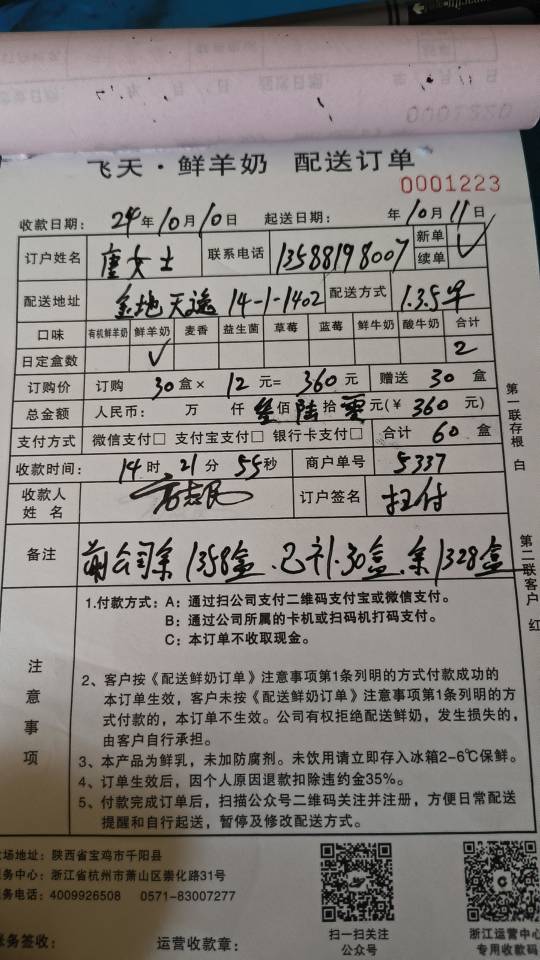 飞天·鲜羊奶 配送订单
0001223
收款日期：24年10月10日 起送日期： 年10月11日
订户姓名 唐女士 联系电话 13588198007 新单 续单 ✓
配送地址 金地天逸 14-1-1402 配送方式 1.3.5早
口味 有机鲜羊奶 鲜羊奶 麦香 益生菌 草莓 蓝莓 鲜牛奶 酸牛奶 合计
日定盒数 ✓ 2
订购价 订购 30盒× 12元= 360元 赠送 30盒
总金额 人民币： 万 仟 叁佰 陆拾 零元(￥360元)
支付方式 微信支付□ 支付宝支付□ 银行卡支付□ 合计 60盒
收款时间： 14时 21分 55秒 商户单号 5337
收款人姓名 订户签名 扫付
备注 前公司余1358盒.已补.30盒.余1328盒
第一联存根 白
第二联客户 红
注意事项
1.付款方式：A：通过扫公司支付二维码支付宝或微信支付。
B：通过公司所属的卡机或扫码机打码支付。
C：本订单不收取现金。
2、客户按《配送鲜奶订单》注意事项第1条列明的方式付款成功的
本订单生效，客户未按《配送鲜奶订单》注意事项第1条列明的方
式付款的，本订单不生效。公司有权拒绝配送鲜奶，发生损失的，
由客户自行承担。
3、本产品为鲜乳，未加防腐剂。未饮用请立即存入冰箱2-6℃保鲜。
4、订单生效后，因个人原因退款扣除违约金35%。
5、付款完成订单后，扫描公众号二维码关注并注册，方便日常配送
提醒和自行起送，暂停及修改配送方式。
场地址：陕西省宝鸡市千阳县
务中心：浙江省杭州市萧山区崇化路31号
务电话：4009926508 0571-83007277
务签收： 运营收款章：
扫一扫关注
公众号
浙江运营中心
专用收款码